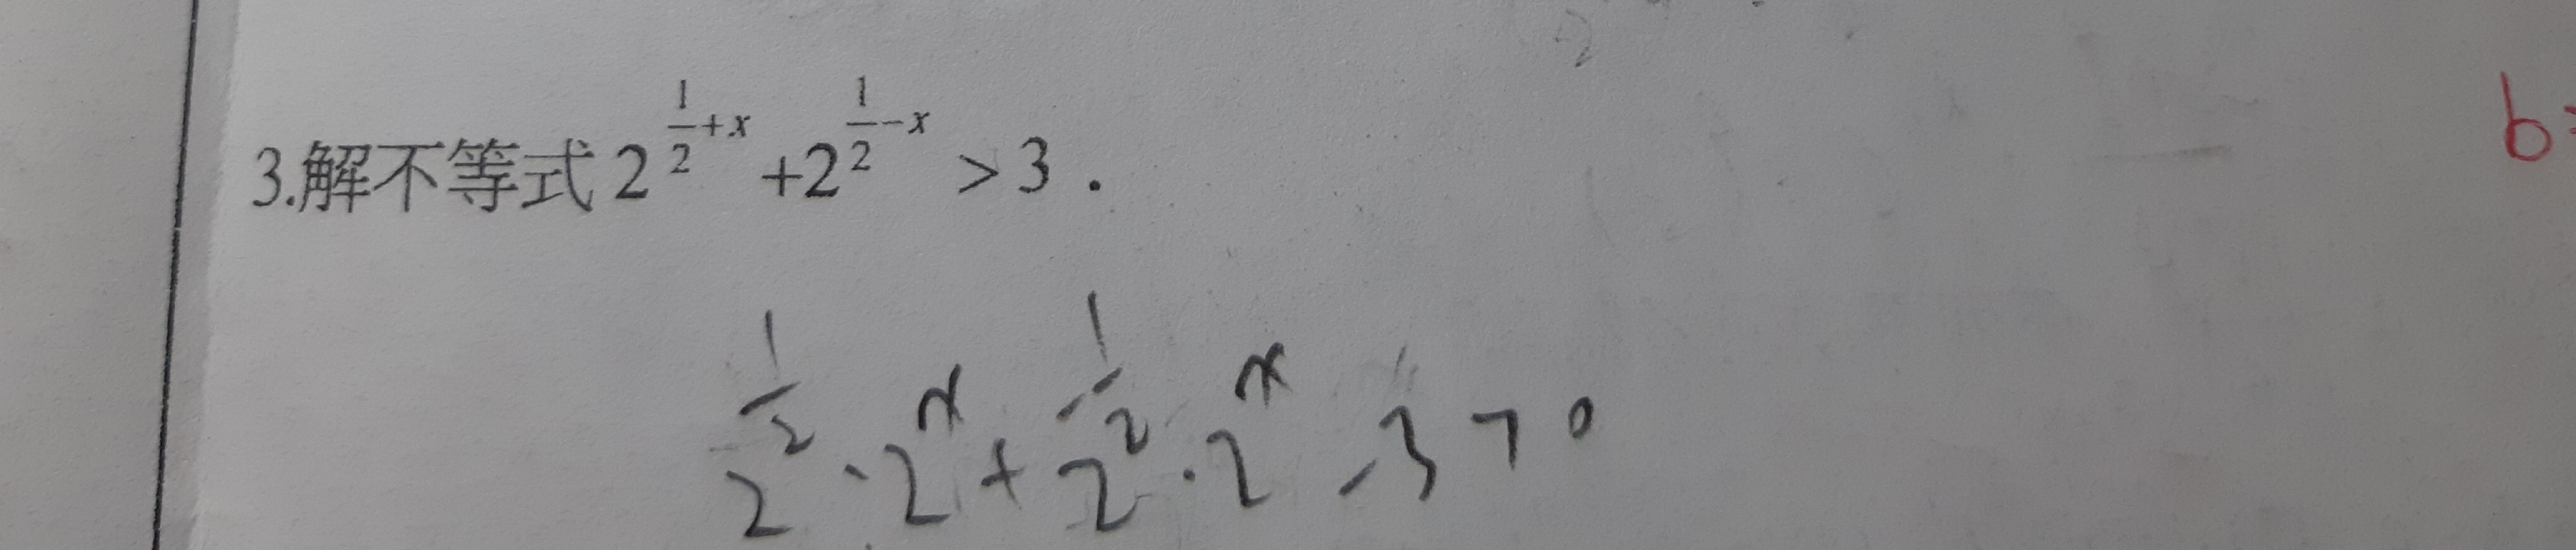 3.解不等式 2^{\frac{1}{2}+x}+2^{\frac{1}{2}-x} > 3 .
2^{\frac{1}{2}} · 2^{x} + 2^{\frac{1}{2}} · 2^{x} - 3 > 0
b=